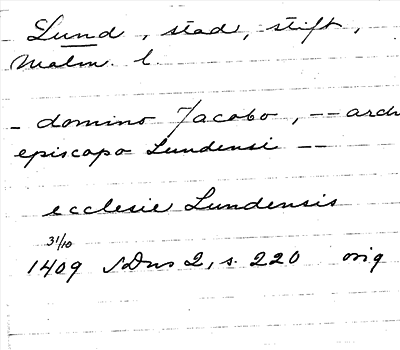 Lund, stad, stift,
Malm. l.
- domino Jacobo, -- arch
episcopo Lundensi --
ecclesie Lundensis
31/10
1409 SDns 2, s. 220 orig